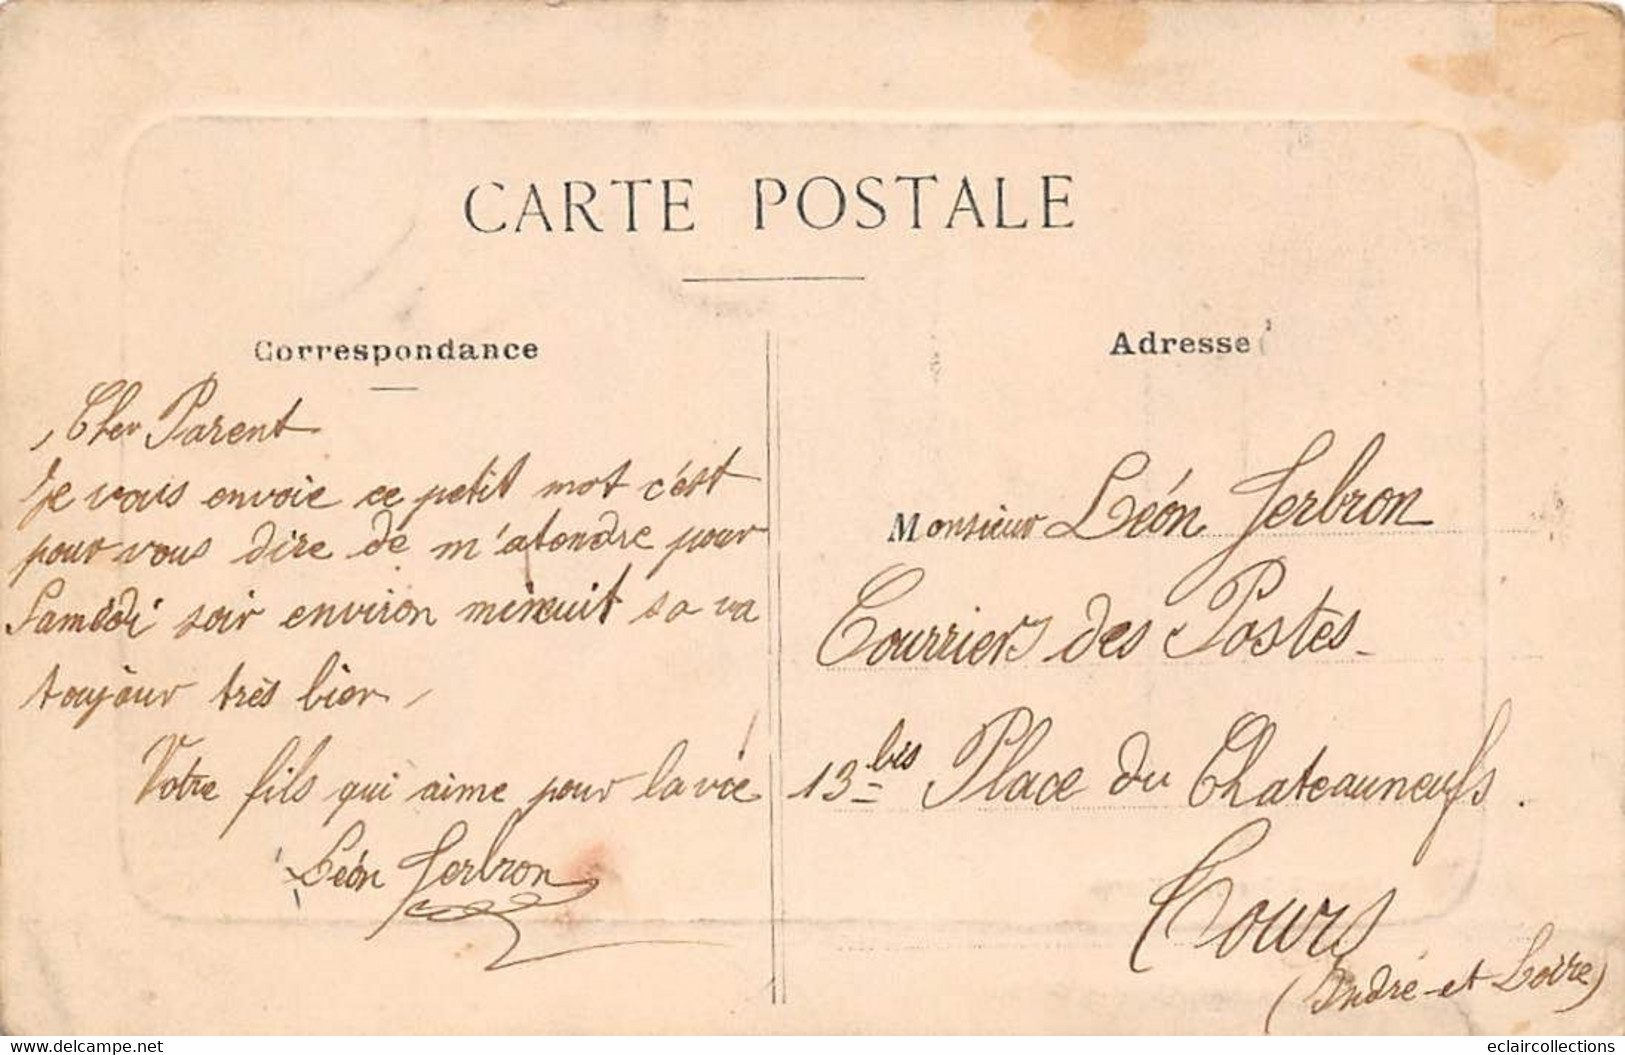 CARTE POSTALE
Correspondance
Adresse
Cher Parent
Je vous envoie ce petit mot c'est
pour vous dire de m'atendre pour
Samedi soir environ minuit sa va
toujour très bien
Votre fils qui aime pour la vie
Léon Jerbron
Monsieur Léon Jerbron
Courriers des Postes
13 bis Place du Chateauneufs.
Tours
(Indre-et Loire)
www.delcampe.net
eclaircollections